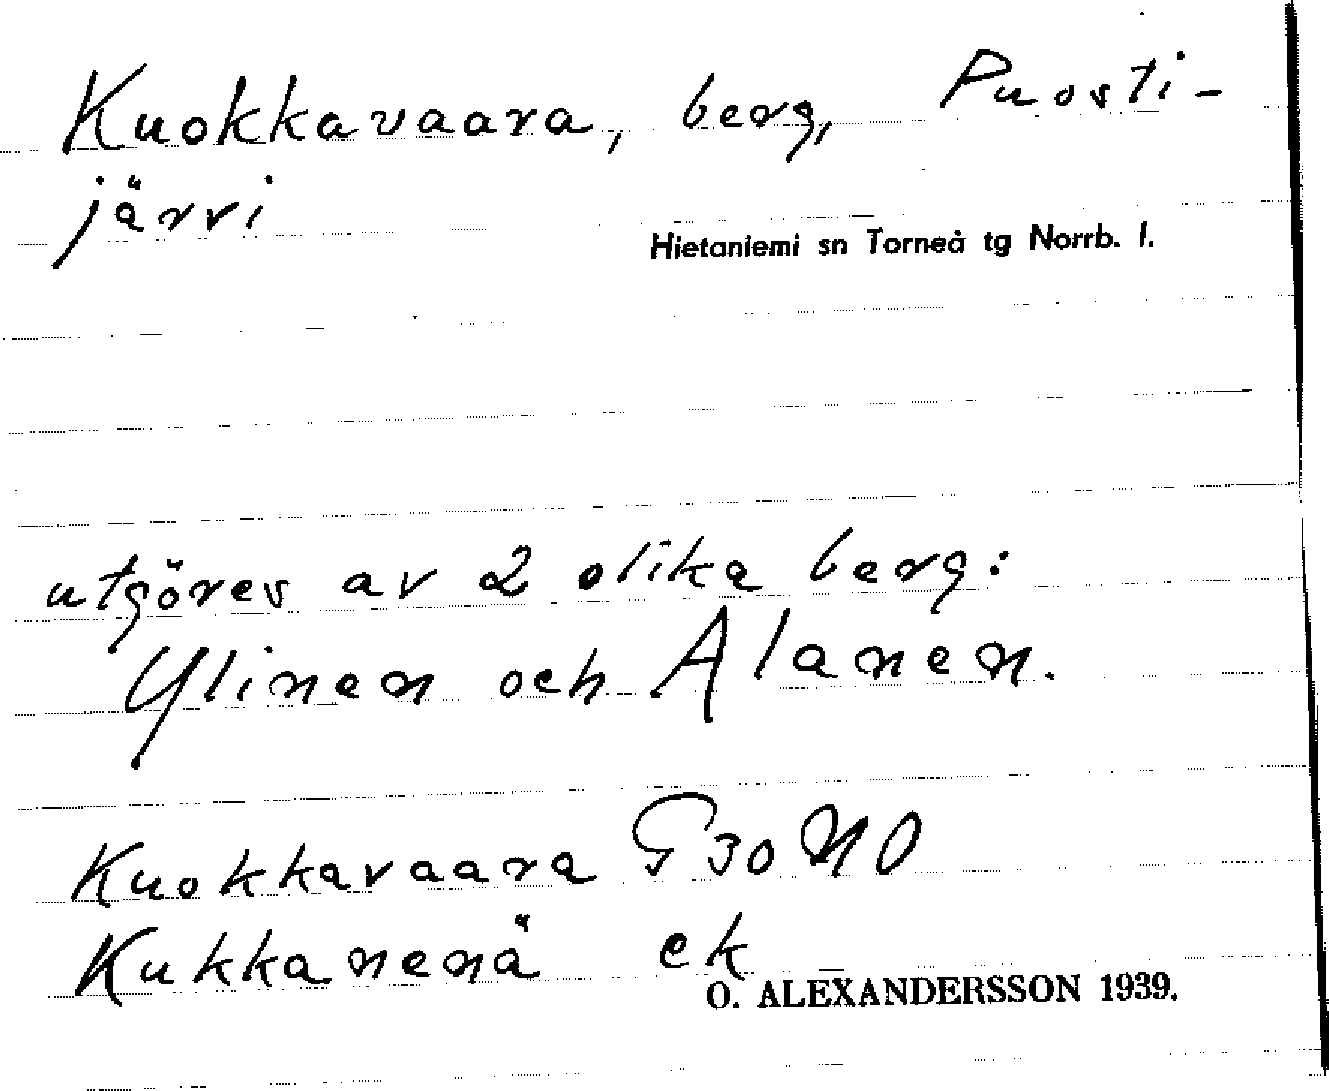 Kuokkavaara, berg, Puosti-
järvi
Hietaniemi sn Torneå tg Norrb. l.
utgöres av 2 olika berg:
Ylinen och Alanen.
Kuokkavaara G 30 NO
Kukkanenä ek
O. ALEXANDERSSON 1939.